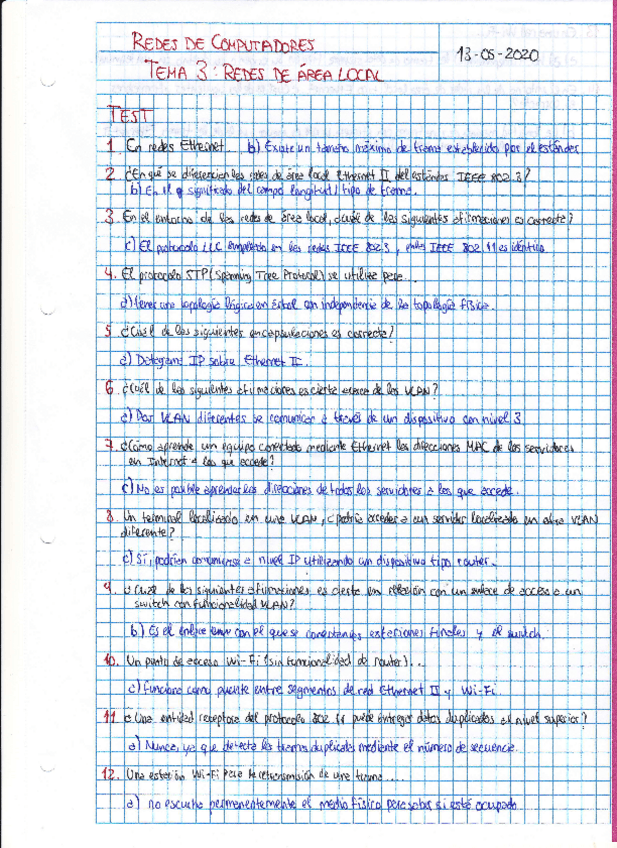 REDES DE COMPUTADORES
13-05-2020
TEMA 3: REDES DE ÁREA LOCAL
TEST
1 En redes Ethernet... b) Existe un tamaño máximo de trama establecido por el estándar
2 ¿En qué se diferencian las redes de área local Ethernet II del estándar IEEE 802.3?
b) En el significado del campo longitud / tipo de trama.
3. En el entorno de las redes de área local, ¿cuál de las siguientes afirmaciones es correcta?
c) El protocolo LLC empleado en las redes IEEE 802.3, IEEE 802.11 es idéntico
4. El protocolo STP (Spanning Tree Protocol) se utiliza para...
d) tener una topología lógica en con independencia de la topología física.
5 ¿Cuál de las siguientes encapsulaciones es correcta?
a) Datagrama IP sobre Ethernet II.
6. ¿Cuál de las siguientes afirmaciones es cierta acerca de las VLAN?
a) Dos VLAN diferentes se comunican a través de un dispositivo con nivel 3.
7. ¿Cómo aprende un equipo conectado mediante Ethernet las direcciones MAC de los servidores
en Internet a los que accede?
c) No es posible aprender las direcciones de todos los servidores a los que accede.
8. Un terminal localizado en una VLAN, ¿podría acceder a un servidor localizado en otra VLAN
diferente?
c) Sí, podrían comunicarse a nivel IP utilizando un dispositivo tipo router.
9. ¿Cuál de las siguientes afirmaciones es cierta en relación con un enlace de acceso a un
switch con funcionalidad VLAN?
b) Es el enlace con el que se conectan las estaciones finales y el switch.
10. Un punto de acceso Wi-Fi (sin funcionalidad de router)...
c) funciona como puente entre segmentos de red Ethernet II y Wi-Fi
11 ¿Una entidad receptora del protocolo 802.11 puede entregar datos duplicados al nivel superior?
a) Nunca, ya que detecta las tramas duplicadas mediante el número de secuencia.
12. Una estación Wi-Fi para la retransmisión de una trama....
a) no escucha permanentemente el medio físico para saber si está ocupado